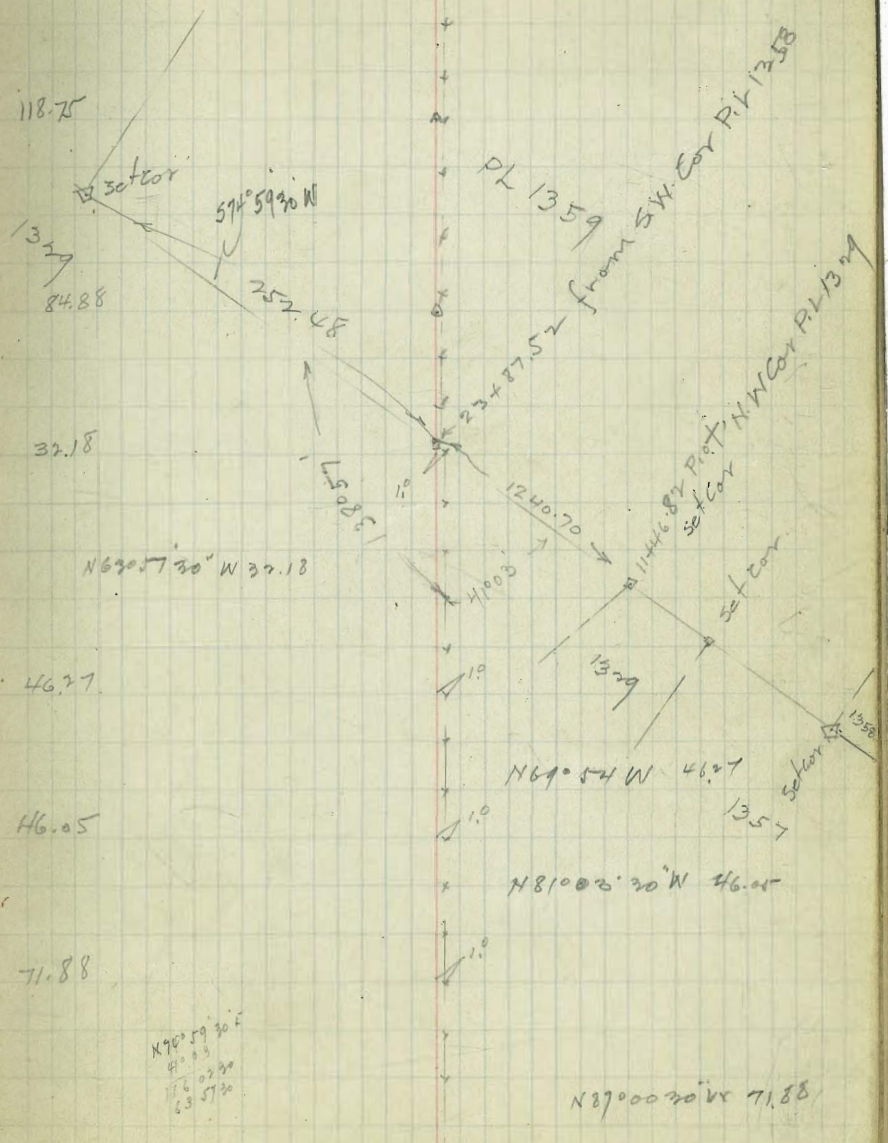 118.75
Set cor
S74°59'30"W
1329
84.88
252.48
PL 1359
23+87.52 from S.W. Cor P.L 1358
32.18
1.0
138°57'
1240.70
41°03'
11+46.82 N.W Cor P.L 1329
Set Cor
Set Cor.
N63°57'30"W 32.18
46.27
1.0
1329
1358
Set cor
1357
N69°54'W 46.27
46.05
1.0
N81°03'30"W 46.05
71.88
1.0
N74°59'30"E
41°03
116 02 30
63 57 30
N89°00'30"W 71.88